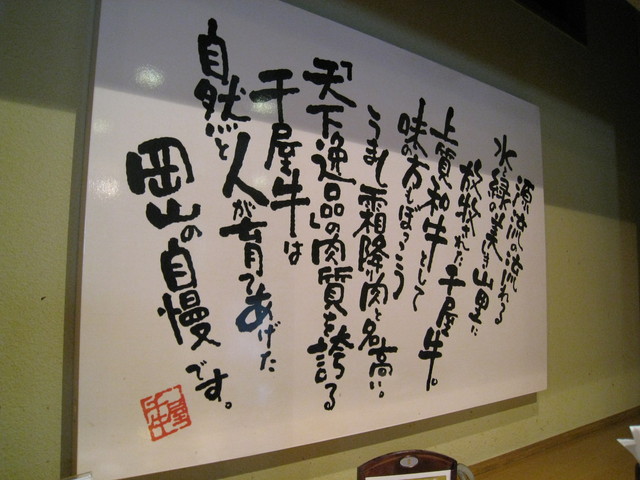 源流の流れる
水と緑の美しき山里に
放牧された千屋牛。
上質和牛として
味の方もぼっこう
うまし霜降肉と名高い。
「天下逸品」の肉質を誇る
千屋牛は
自然と人が育てあげた
岡山の自慢です。
千屋牛